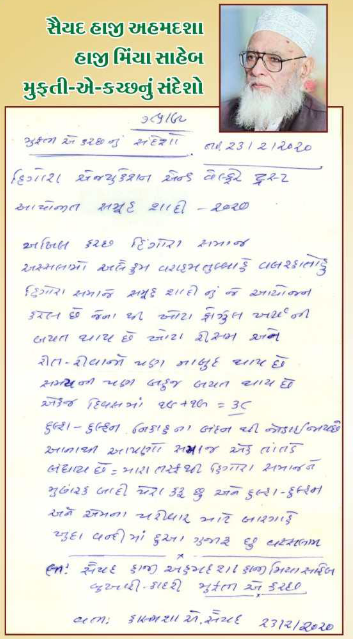 સૈયદ હાજી અહમદશા
હાજી મિંયા સાહેબ
મુફતી-એ-કચ્છનું સંદેશો
૭૮૬/૯૨
મુફતી એ કચ્છ નું સંદેશો. તા. 23/2/2020
હિંગોરા એજ્યુકેશન એન્ડ વેલ્ફેર ટ્રસ્ટ
આયોજીત સમૂહ શાદી - ૨૦૨૦
અખિલ કચ્છ હિંગોરા સમાજ
અસ્સલામો અલૈકુમ વરાહમતુલ્લાહે વબરકાતોહુ
હિંગોરા સમાજે સમૂહ શાદી નું જે આયોજન
કરેલ છે જેના થી ખોટા ફીઝુલ ખર્ચની
બચત થાય છે ખોટા રીસમ અને
રીત-રીવાજો પણ નાબુદ થાય છે
સમયની પણ બહુજ બચત થાય છે
એકજ દિવસમાં ૧૯+૧૯ = ૩૮
દુલ્હા-દુલ્હન નિકાહના બંધન થી જોડાઈ જાય છે
આનાથી આપણો સમાજ એક તાંતણે
બંધાય છે - મારા તરફથી હિંગોરા સમાજને
મુબારક બાદી પેશ કરૂ છું અને દુલ્હા-દુલ્હન
અને એમના પરીવાર માટે બારગાહે
ખુદા વન્દી માં દુઆ ગુજાર છું વસ્સલામ
લી: સૈયદ હાજી અહમદશા હાજી મિયા સાહેબ
બુખારી-કાદરી મુફતી એ કચ્છ
સૈયદ 23/2/2020